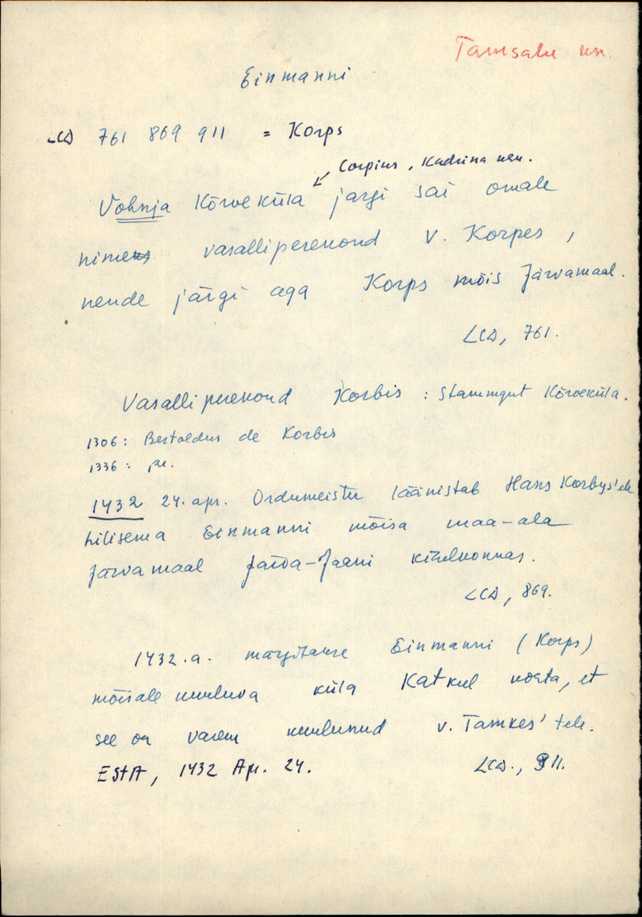 Tamsalu khn.
Einmanni
LCD 761 869 911 = Korps
Corpius, Kadrina khn.
Vohnja Kõrveküla järgi sai omale
nimens vasalliperekond v. Korpes,
nende järgi aga Korps mõis Järvamaal.
LCD, 761.
Vasalliperekond Korbis : Stammgut Kõrveküla.
1306: Bertoldus de Korbis
1336:
1432 24. apr. Ordumeister läänistab Hans Korbys'ele
hilisema Einmanni mõisa maa-ala
Järvamaal Järva-Jaani kihelkonnas.
LCD, 869.
1432.a. märgitakse Einmanni (Korps)
mõisale kuuluva küla Katkul kohta, et
see on varem kuulunud v. Tamkes'tele.
EStA, 1432 Apr. 24. LCD., 911.